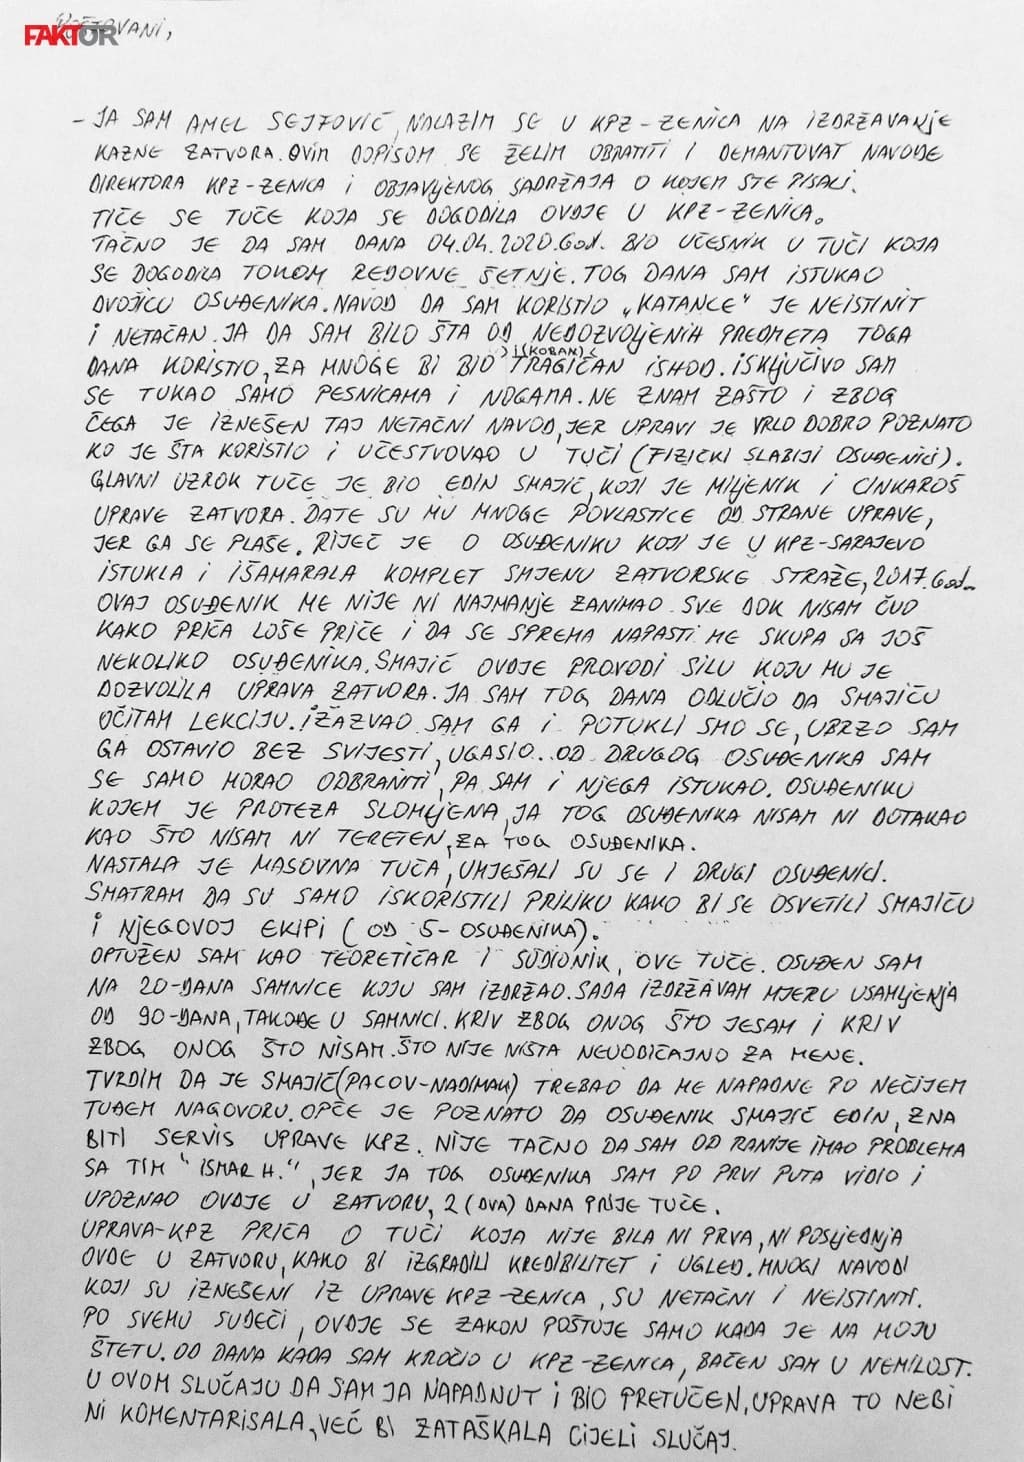 FAKTOR
POŠTOVANI,
- JA SAM AMEL SEJFOVIĆ, NALAZIM SE U KPZ-ZENICA NA IZDRŽAVANJE
KAZNE ZATVORA. OVIM DOPISOM SE ŽELIM OBRATITI I DEMANTOVAT NAVOĐE
DIREKTORA KPZ-ZENICA I OBJAVLJENOG SADRŽAJA O KOJEM STE PISALI.
TIČE SE TUČE KOJA SE DOGODILA OVDJE U KPZ-ZENICA.
TAČNO JE DA SAM DANA 04.04.2020.God. BIO UČESNIK U TUČI KOJA
SE DOGODILA TOKOM REDOVNE ŠETNJE. TOG DANA SAM ISTUKAO
DVOJICU OSUĐENIKA. NAVOD DA SAM KORISTIO „KATANCE" JE NEISTINIT
I NETAČAN. JA DA SAM BILO ŠTA OD NEDOZVOLJENIH PREDMETA TOGA
DANA KORISTIO, ZA MNOGE BI BIO TRAGIČAN ISHOD. ISKLJUČIVO SAM
(KOBAN)
SE TUKAO SAMO PESNICAMA I NOGAMA. NE ZNAM ZAŠTO I ZBOG
ČEGA JE IZNEŠEN TAJ NETAČNI NAVOD, JER UPRAVI JE VRLO DOBRO POZNATO
KO JE ŠTA KORISTIO I UČESTVOVAO U TUČI (FIZIČKI SLABIJI OSUĐENICI).
GLAVNI UZROK TUČE JE BIO EDIN SMAJIĆ, KOJI JE MILJENIK I CINKAROŠ
UPRAVE ZATVORA. DATE SU MU MNOGE POVLASTICE OD STRANE UPRAVE,
JER GA SE PLAŠE. RIJEČ JE O OSUĐENIKU KOJI JE U KPZ-SARAJEVO
ISTUKLA I IŠAMARALA KOMPLET SMJENU ZATVORSKE STRAŽE, 2017.God..
OVAJ OSUĐENIK ME NIJE NI NAJMANJE ZANIMAO. SVE DOK NISAM ČUO
KAKO PRIČA LOŠE PRIČE I DA SE SPREMA NAPASTI ME SKUPA SA JOŠ
NEKOLIKO OSUĐENIKA. SMAJIĆ OVDJE PROVODI SILU KOJU MU JE
DOZVOLILA UPRAVA ZATVORA. JA SAM TOG DANA ODLUČIO DA SMAJIĆU
OČITAM LEKCIJU. IZAZVAO SAM GA I POTUKLI SMO SE, UBRZO SAM
GA OSTAVIO BEZ SVIJESTI, UGASIO... OD DRUGOG OSUĐENIKA SAM
SE SAMO MORAO ODBRANITI, PA SAM I NJEGA ISTUKAO. OSUĐENIKU
KOJEM JE PROTEZA SLOMLJENA, JA TOG OSUĐENIKA NISAM NI DOTAKAO
KAO ŠTO NISAM NI TERETEN, ZA TOG OSUĐENIKA.
NASTALA JE MASOVNA TUČA, UMJEŠALI SU SE I DRUGI OSUĐENICI.
SMATRAM DA SU SAMO ISKORISTILI PRILIKU KAKO BI SE OSVETILI SMAJIĆU
I NJEGOVOJ EKIPI (OD 5-OSUĐENIKA).
OPTUŽEN SAM KAO TEORETIČAR I SUDIONIK, OVE TUČE. OSUĐEN SAM
NA 20-DANA SAMNICE KOJU SAM IZDRŽAO. SADA IZDRŽAVAM MJERU USAMLJENJA
OD 90-DANA, TAKOĐE U SAMNICI. KRIV ZBOG ONOG ŠTO JESAM I KRIV
ZBOG ONOG ŠTO NISAM. ŠTO NIJE NIŠTA NEUOBIČAJNO ZA MENE.
TVRDIM DA JE SMAJIĆ(PACOV-NADIMAK) TREBAO DA ME NAPADNE PO NEČIJEM
TUĐEM NAGOVORU. OPĆE JE POZNATO DA OSUĐENIK SMAJIĆ EDIN, ZNA
BITI SERVIS UPRAVE KPZ. NIJE TAČNO DA SAM OD RANIJE IMAO PROBLEMA
SA TIM "ISMAR H.", JER JA TOG OSUĐENIKA SAM PO PRVI PUTA VIDIO I
UPOZNAO OVDJE U ZATVORU, 2 (DVA) DANA PRIJE TUČE.
UPRAVA-KPZ PRIČA O TUČI KOJA NIJE BILA NI PRVA, NI POSLJEDNJA
OVDE U ZATVORU, KAKO BI IZGRADILI KREDIBILITET I UGLED. MNOGI NAVODI
KOJI SU IZNEŠENI IZ UPRAVE KPZ-ZENICA, SU NETAČNI I NEISTINITI.
PO SVEMU SUDEĆI, OVDJE SE ZAKON POŠTUJE SAMO KADA JE NA MOJU
ŠTETU. OD DANA KADA SAM KROČIO U KPZ-ZENICA, BAČEN SAM U NEMILOST.
U OVOM SLUČAJU DA SAM JA NAPADNUT I BIO PRETUČEN, UPRAVA TO NEBI
NI KOMENTARISALA, VEĆ BI ZATAŠKALA CIJELI SLUČAJ.